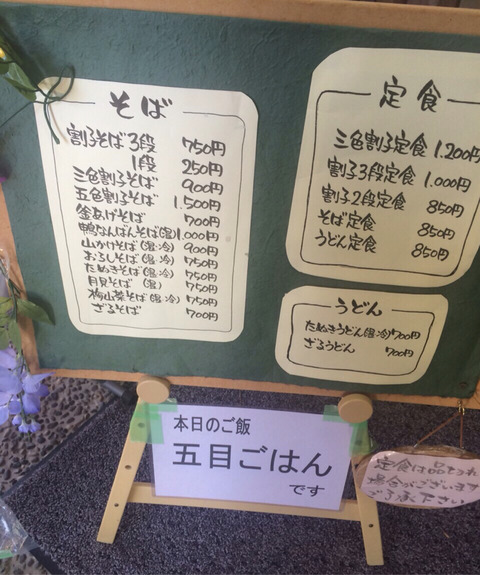 そば
割子そば3段 750円
1段 250円
三色割子そば 900円
五色割子そば 1.500円
釜あげそば 700円
鴨なんばんそば(温)1,000円
山かけそば(温・冷) 900円
おろしそば(温・冷) 750円
たぬきそば(温・冷) 750円
月見そば (温) 750円
梅山菜そば(温・冷) 750円
ざるそば 700円
定食
三色割子定食 1.200円
割子3段定食 1.000円
割子2段定食 850円
そば定食 850円
うどん定食 850円
うどん
たぬきうどん(温・冷)700円
ざるうどん 700円
本日のご飯
五目ごはん
です
定食は品きれ
場合がございます
ご了承下さい